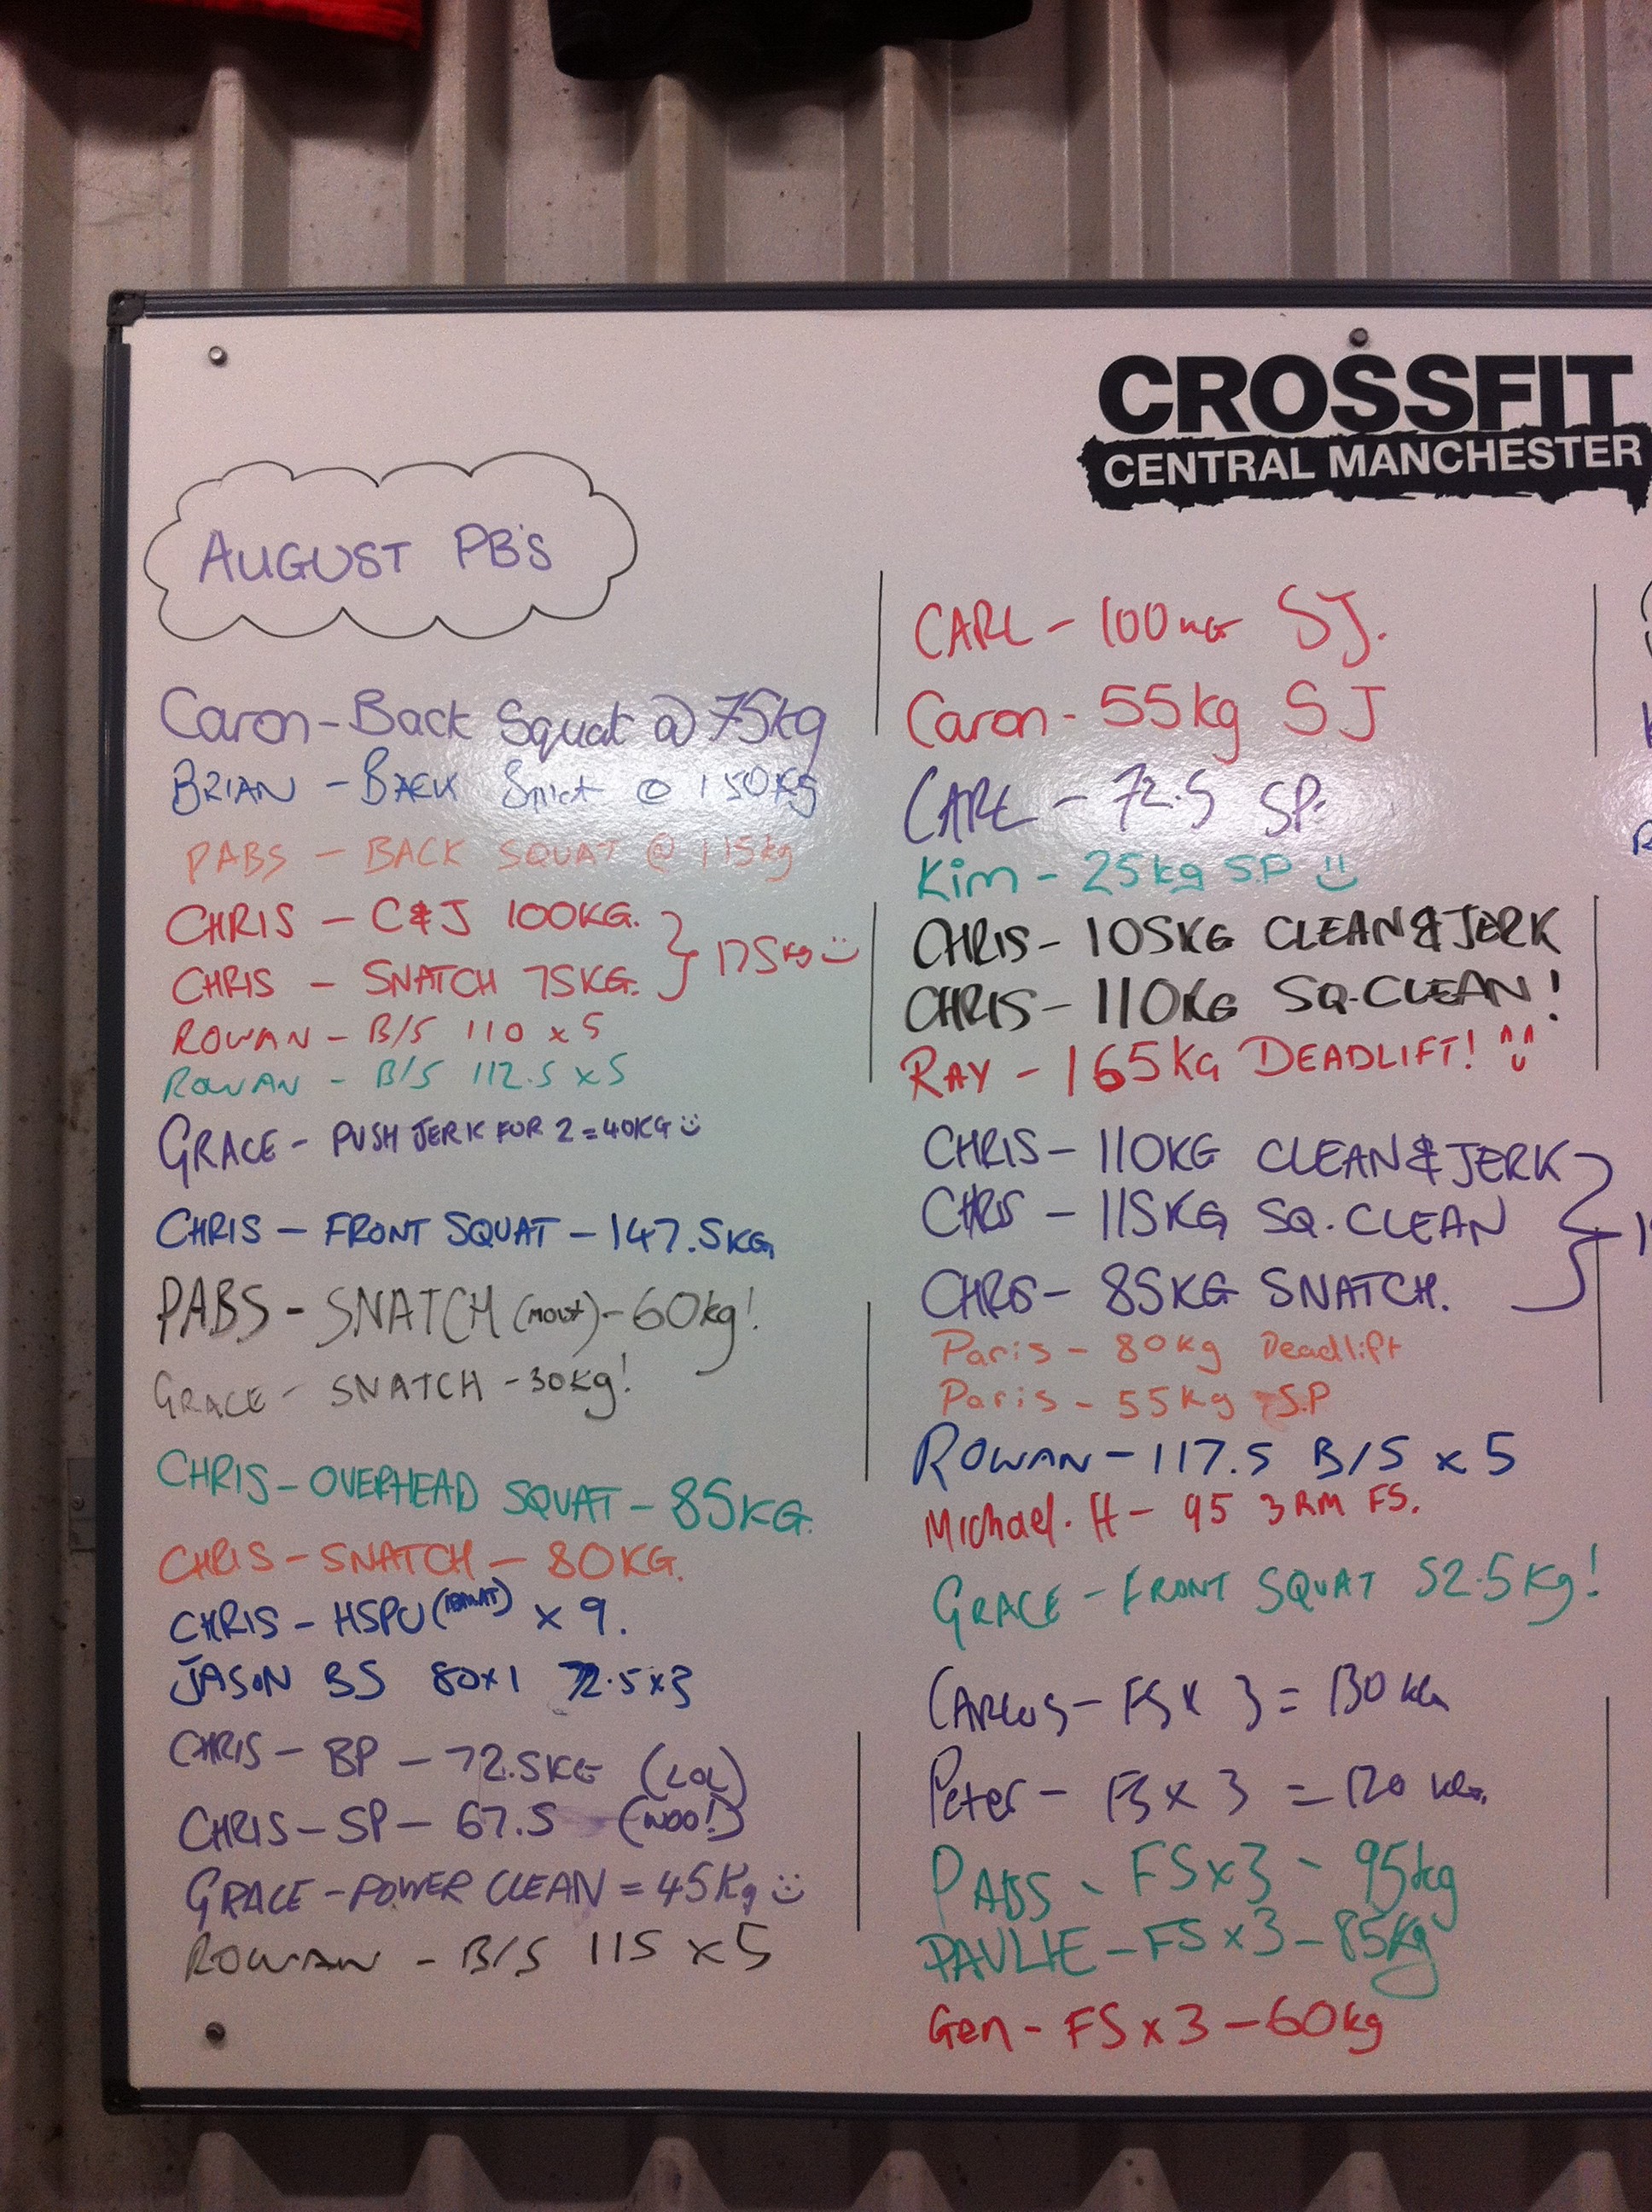 CROSSFIT
CENTRAL MANCHESTER
AUGUST PB'S
Caron - Back Squat @ 75kg
BRIAN - BACK @ 150KG
PABS - BACK SQUAT @ 115kg
CHRIS - C&J 100KG.
CHRIS - SNATCH 75KG.
175KG
ROWAN - B/S 110 x 5
ROWAN - B/S 112.5 x 5
GRACE - PUSH JERK FOR 2 = 40KG
CHRIS - FRONT SQUAT - 147.5KG
PABS - SNATCH - 60kg!
GRACE - SNATCH - 30kg!
CHRIS - OVERHEAD SQUAT - 85KG.
CHRIS - SNATCH - 80KG.
CHRIS - HSPU x 9.
JASON BS 80x1 72.5x3
CHRIS - BP - 72.5KG (LOL)
CHRIS - SP - 67.5 (WOO!)
GRACE - POWER CLEAN = 45Kg
ROWAN - B/S 115 x 5
CARL - 100KG SJ.
Caron - 55kg SJ
CARL - 72.5 SP.
Kim - 25kg S.P
CHRIS - 105KG CLEAN & JERK
CHRIS - 110KG SQ.CLEAN!
RAY - 165KG DEADLIFT!
CHRIS - 110KG CLEAN & JERK
CHRIS - 115KG SQ.CLEAN
CHRIS - 85KG SNATCH.
Paris - 80kg Deadlift
Paris - 55kg S.P
ROWAN - 117.5 B/S x 5
Michael. H - 95 3RM FS.
GRACE - FRONT SQUAT 52.5Kg!
CARLOS - FS x 3 = 130 KG
Peter - FS x 3 = 120 KG.
PABS - FS x 3 - 95kg
PAULIE - FS x 3 - 85kg
Gen - FS x 3 - 60kg